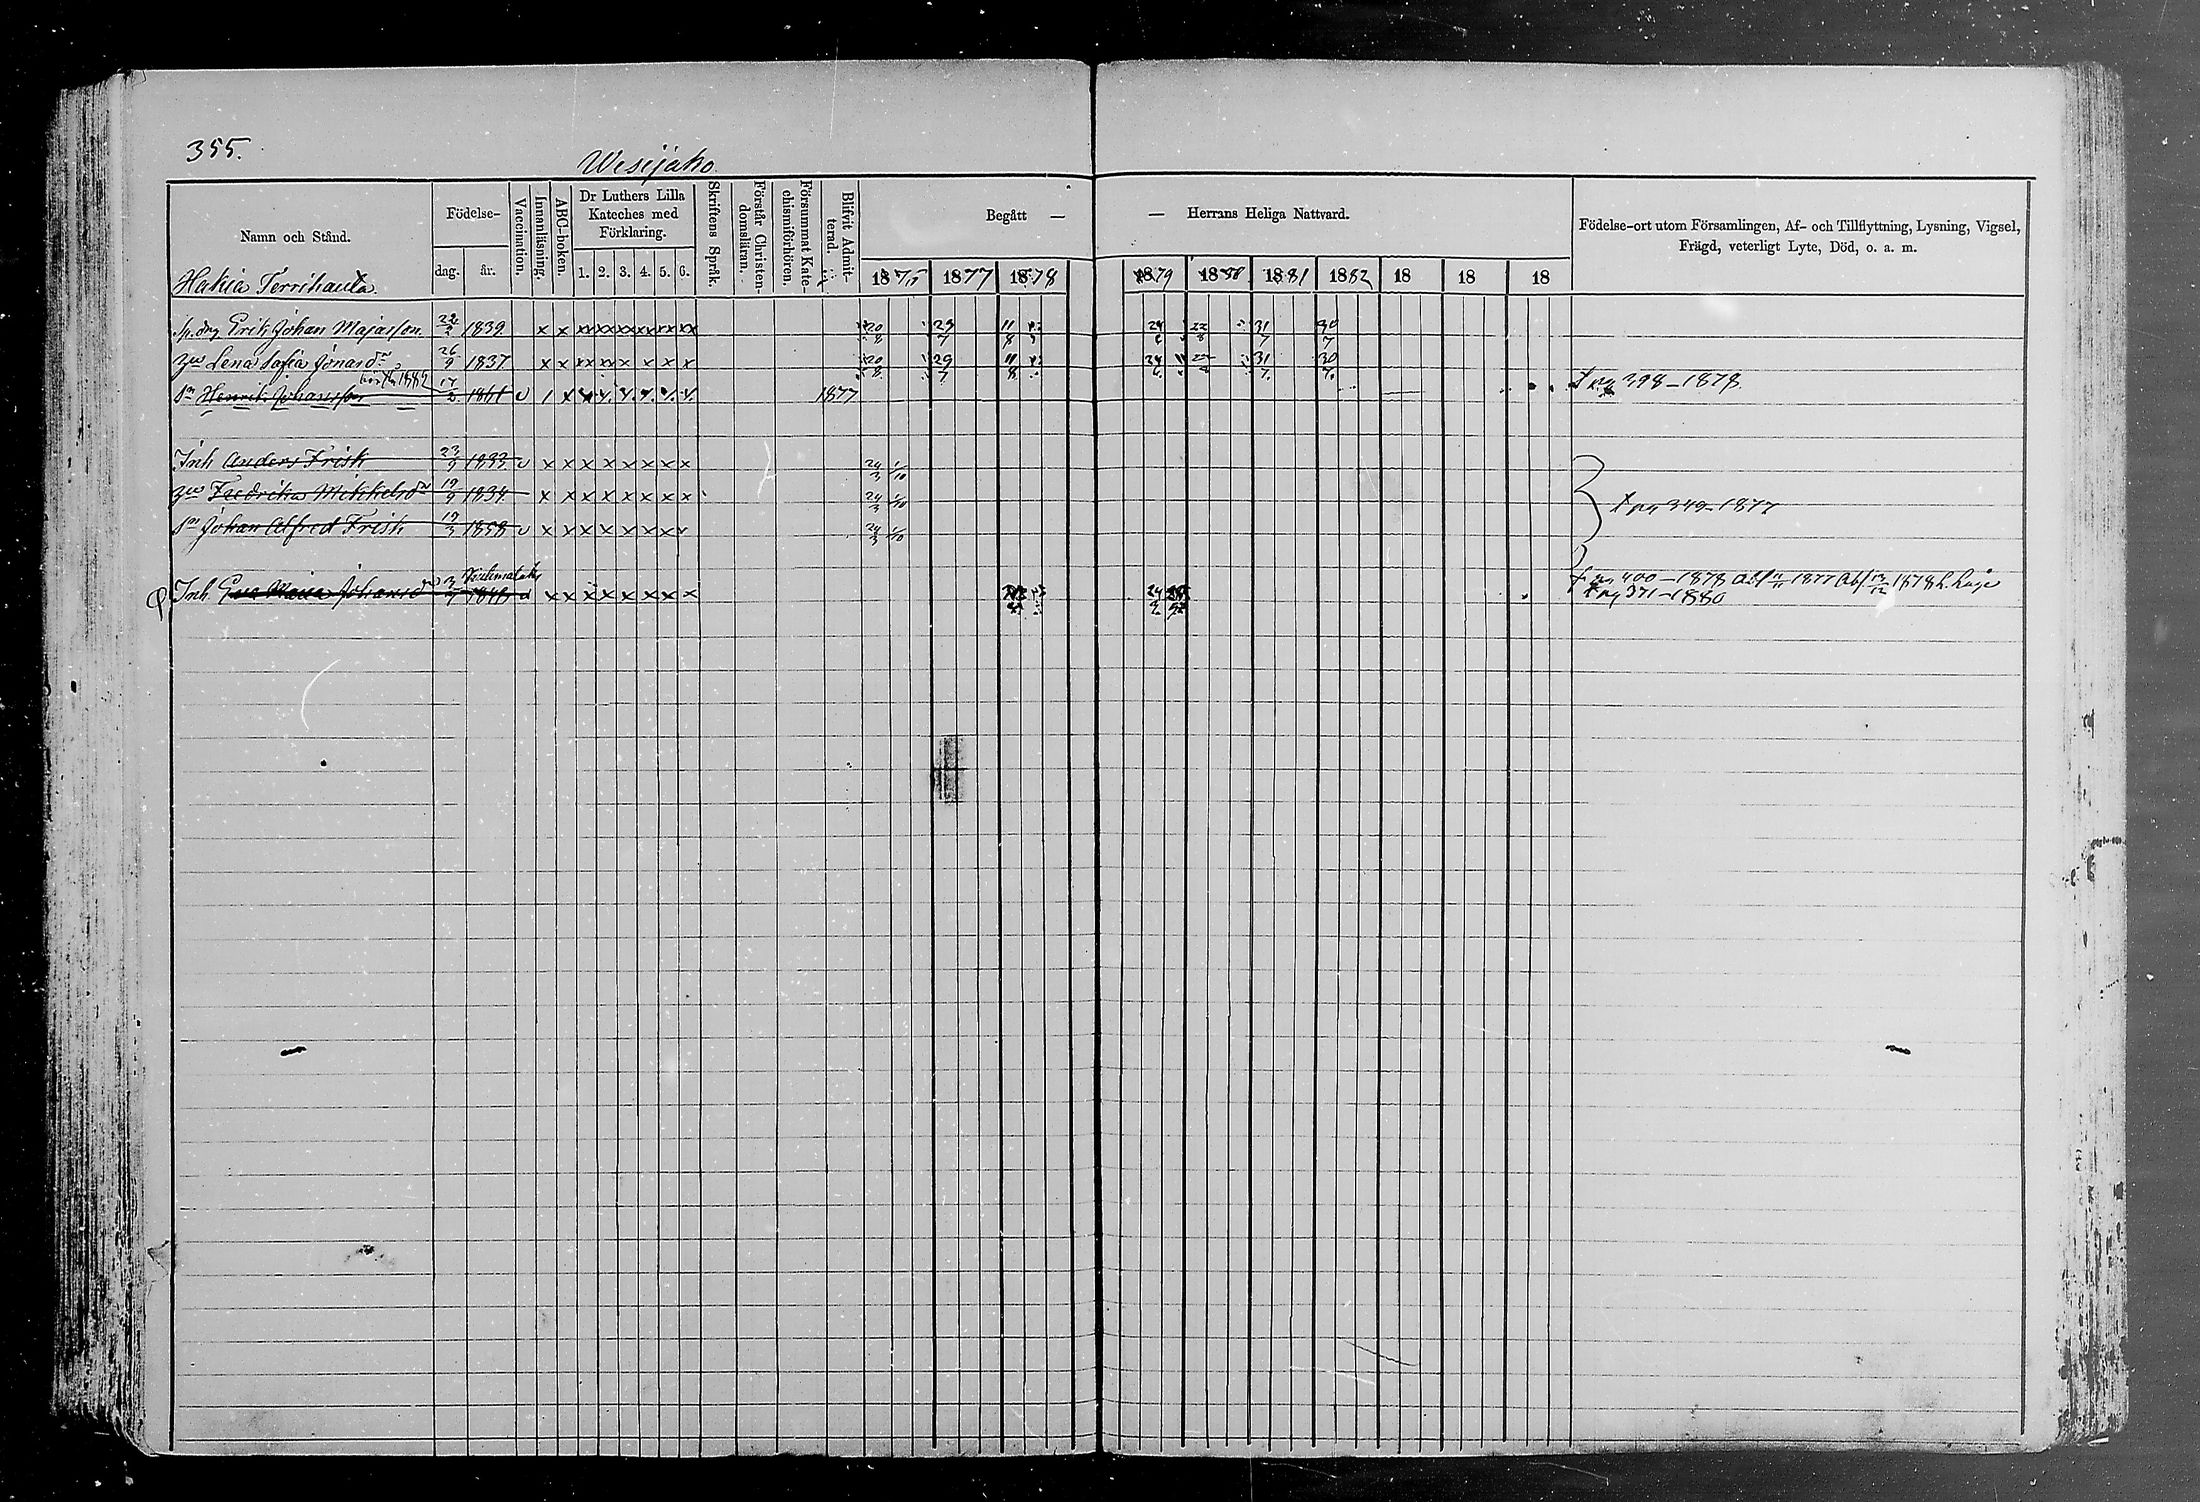 355.
Wesijako.
Namn och Stånd.
Födelse-
dag. år.
Vaccination.
Innanläsning.
ABC-boken.
Dr Luthers Lilla Kateches med Förklaring.
1. 2. 3. 4. 5. 6.
Skriftens Språk.
Förstår Christendomsläran.
Försummat Katechismiförhören.
Blifvit Admitterad.
Begått — — Herrans Heliga Nattvard.
1875 1877 1878 1879 1880 1881 1882 18 18 18
Födelse-ort utom Församlingen, Af- och Tillflyttning, Lysning, Vigsel,
Frägd, veterligt Lyte, Död, o. a. m.
Hakia Terrihauta.
Erik Johan Majasson 22/2 1839 x x xx xx xx xx xx xx 20/8 29/7 11/8 24/6 22/8 31/7 30/7
Lena Sofia Jonasdr 26/9 1837 x x xx xx x x x x 20/8 29/7 11/8 24/6 31/7 30/7
1882
Henrik Johansson 17/2 1861 v 1877 398-1878
Inh Anders Frisk 23/9 1833 v x x x x x x x x 24/3 1/10
Fredrika Mikkelsdr 19/9 1834 x x x x x x x x 24/3 1/10 349-1877
Johan Alfred Frisk 19/3 1858 v x x x x x x x x 24/3 1/10
Inh. Eva Maria Johansdr x x x x x x x x 400-1878 1877 1878
371-1880